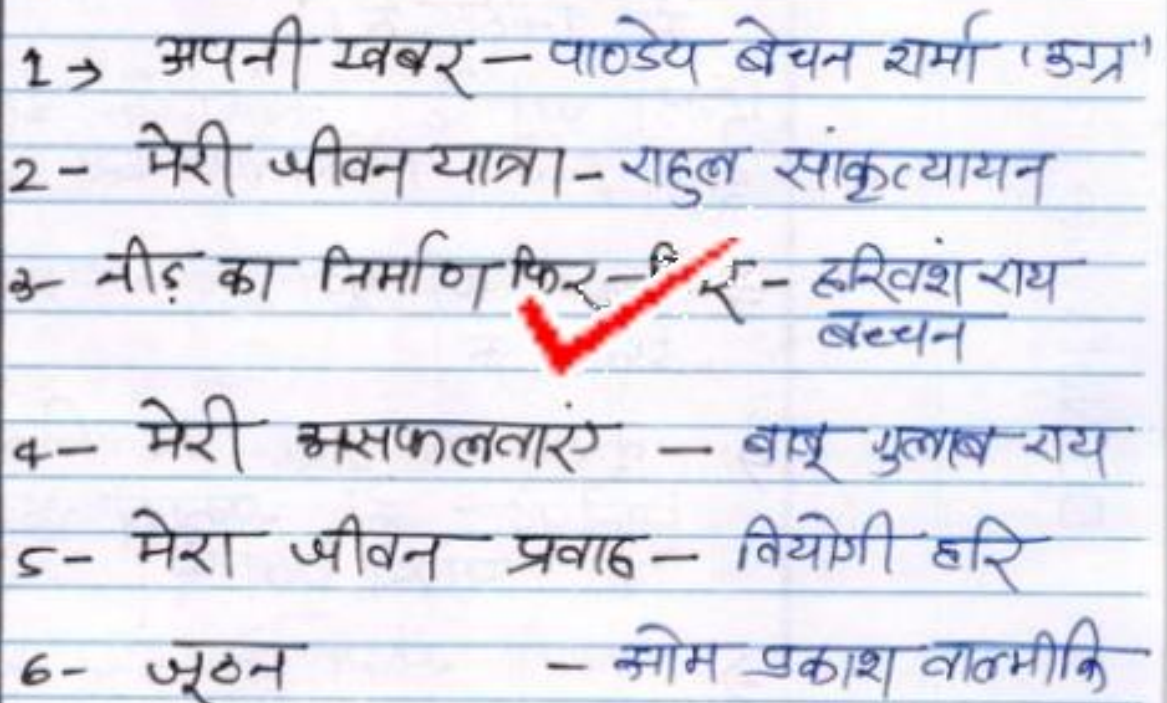 1→ अपनी खबर - पाण्डेय बेचन शर्मा 'उग्र'
2- मेरी जीवन यात्रा - राहुल सांकृत्यायन
3- नीड़ का निर्माण फिर - फिर - हरिवंश राय
बच्चन
4- मेरी असफलताएं - बाबू गुलाब राय
5- मेरा जीवन प्रवाह - वियोगी हरि
6- जूठन - ओम प्रकाश वाल्मीकि